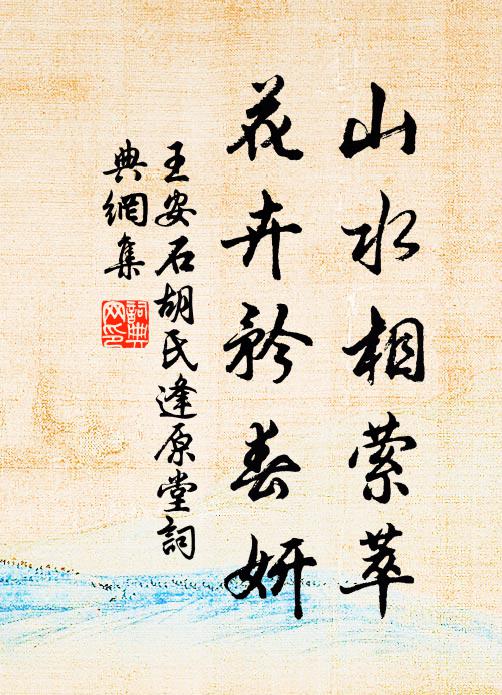 山水相萦萃
花卉矜春妍
王安石胡氏逢原堂詞
典網集
詞典
网印